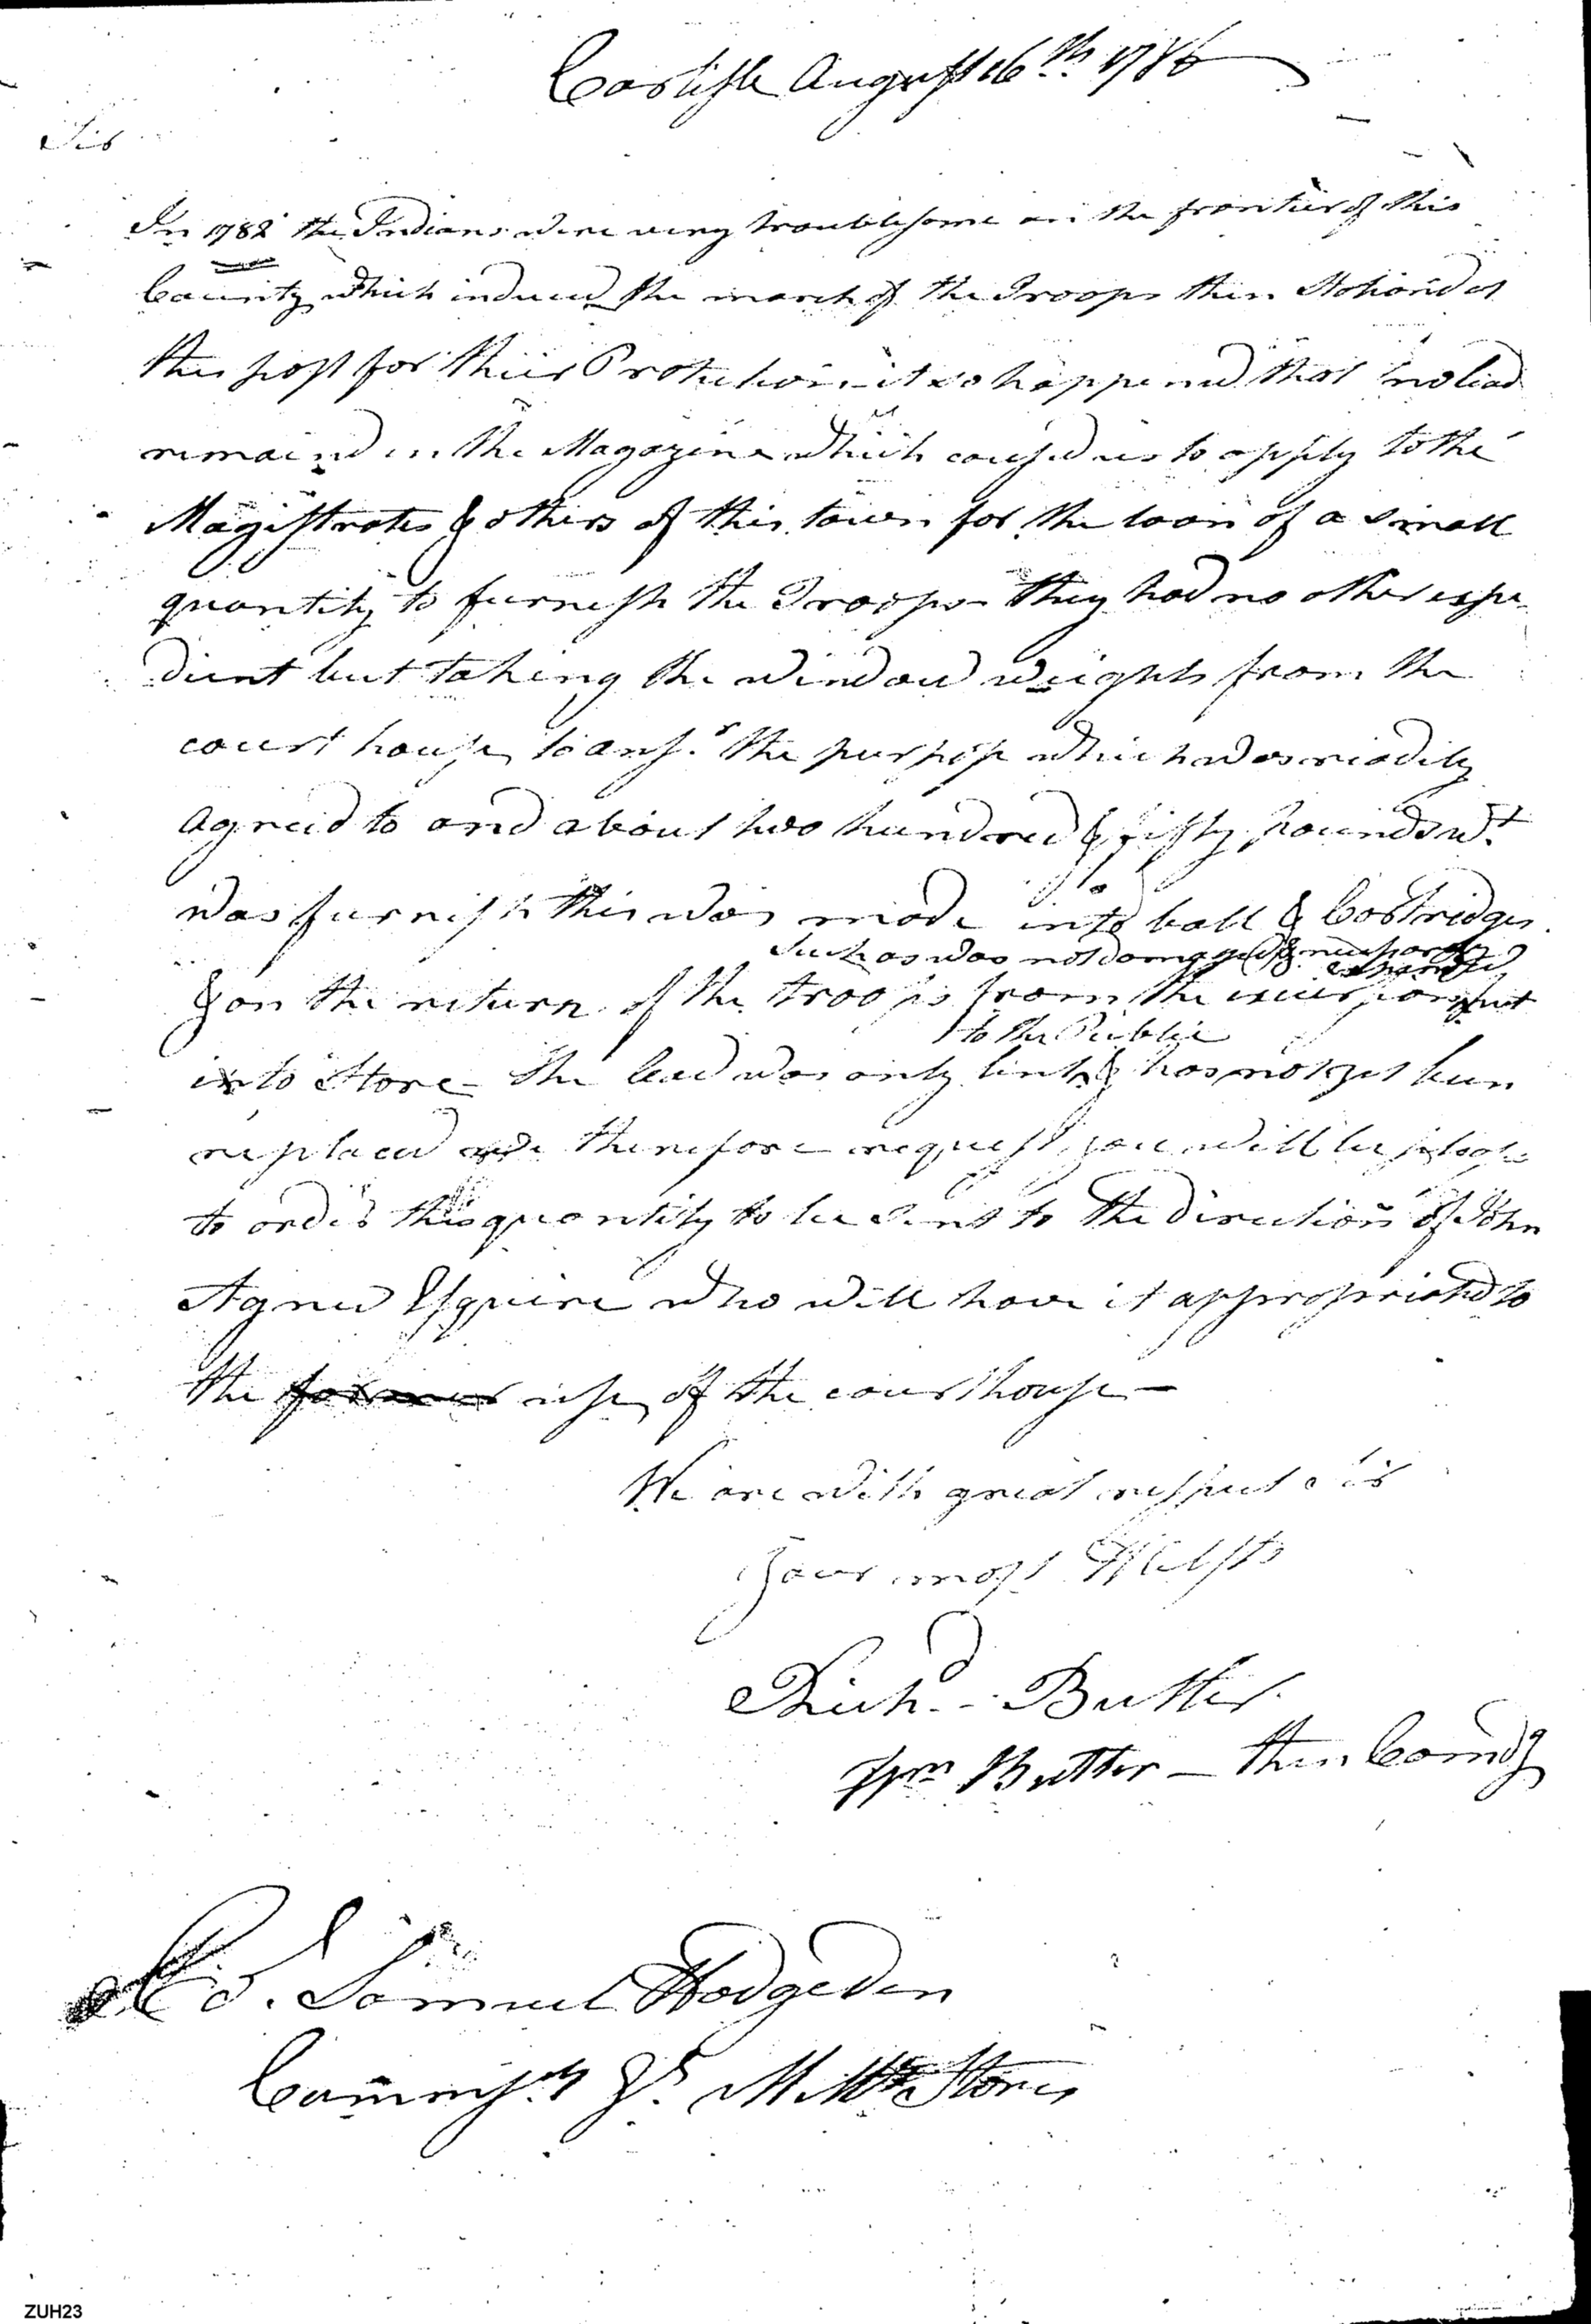 Carlisle August 16th 1786
Sir
In 1782 the Indians were very troublesome on the frontier of this
County which induced the march of the Troops then Stationd at
this post for thier Protection it so happened that no lead
remaind in the Magazine which caused us to apply to the
Magistrates & others of this town for the loan of a small
quantity to furnish the Troops - they had no other expe
dient but taking the window weights from the
court house to ansr. the purpose which was readily
agreed to and about two hundred & fifty pounds wt.
was furnish this was made into ball & Cartridges.
such as was not damaged &
expended
& on the return of the troops from the excursion put
to the Public
into Store - the lead was only lent & has not yet been
replaced we therefore request you will be please
to order this quantity to be sent to the direction of John
Agnew Esquire who will have it appropriated to
the former use of the courthouse -
We are with great respect Sir
Your most Hble Sts
Richd. - Butler.
Wm Butler - then Comdg
Col. Samuel Hodgeden
Commissy Gl. Mily Stores
ZUH23